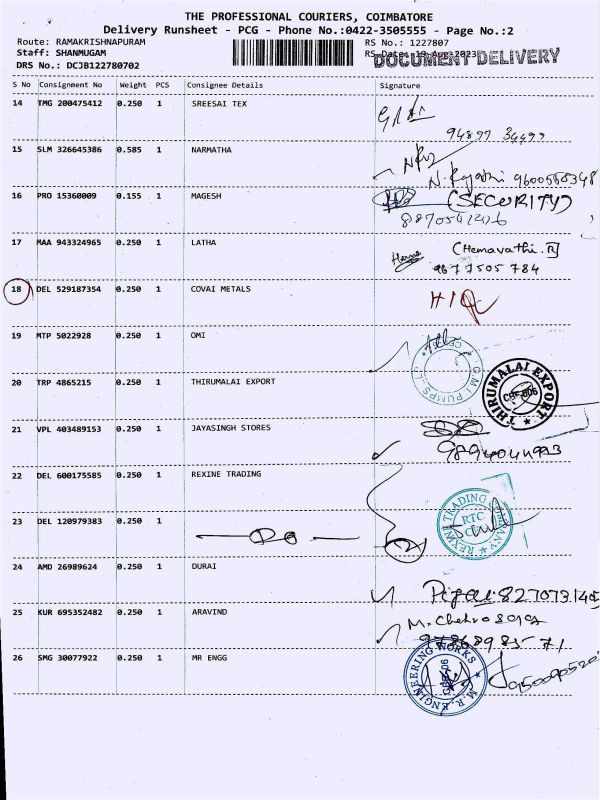 THE PROFESSIONAL COURIERS, COIMBATORE
Delivery Runsheet - PCG - Phone No.:0422-3505555 - Page No.:2
Route: RAMAKRISHNAPURAM RS No.: 1227807
Staff: SHANMUGAM RS Date: 19-Aug-2023
DOCUMENT DELIVERY
DRS No.: DCJB122780702
S No Consignment No Weight PCS Consignee Details Signature
14 TMG 200475412 0.250 1 SREESAI TEX
94897 34499
15 SLM 326645386 0.585 1 NARMATHA
9600568348
16 PRO 15360009 0.155 1 MAGESH (SECURITY)
17 MAA 943324965 0.250 1 LATHA (Hemavathi.R)
9677505784
18 DEL 529187354 0.250 1 COVAI METALS
19 MTP 5022928 0.250 1 OMI
20 TRP 4865215 0.250 1 THIRUMALAI EXPORT
THIRUMALAI EXPORT
CBE-006
21 VPL 403489153 0.250 1 JAYASINGH STORES
22 DEL 600175585 0.250 1 REXINE TRADING
23 DEL 120979383 0.250 1
24 AMD 26989624 0.250 1 DURAI
25 KUR 695352482 0.250 1 ARAVIND
26 SMG 30077922 0.250 1 MR ENGG
M.R. ENGINEERING WORKS